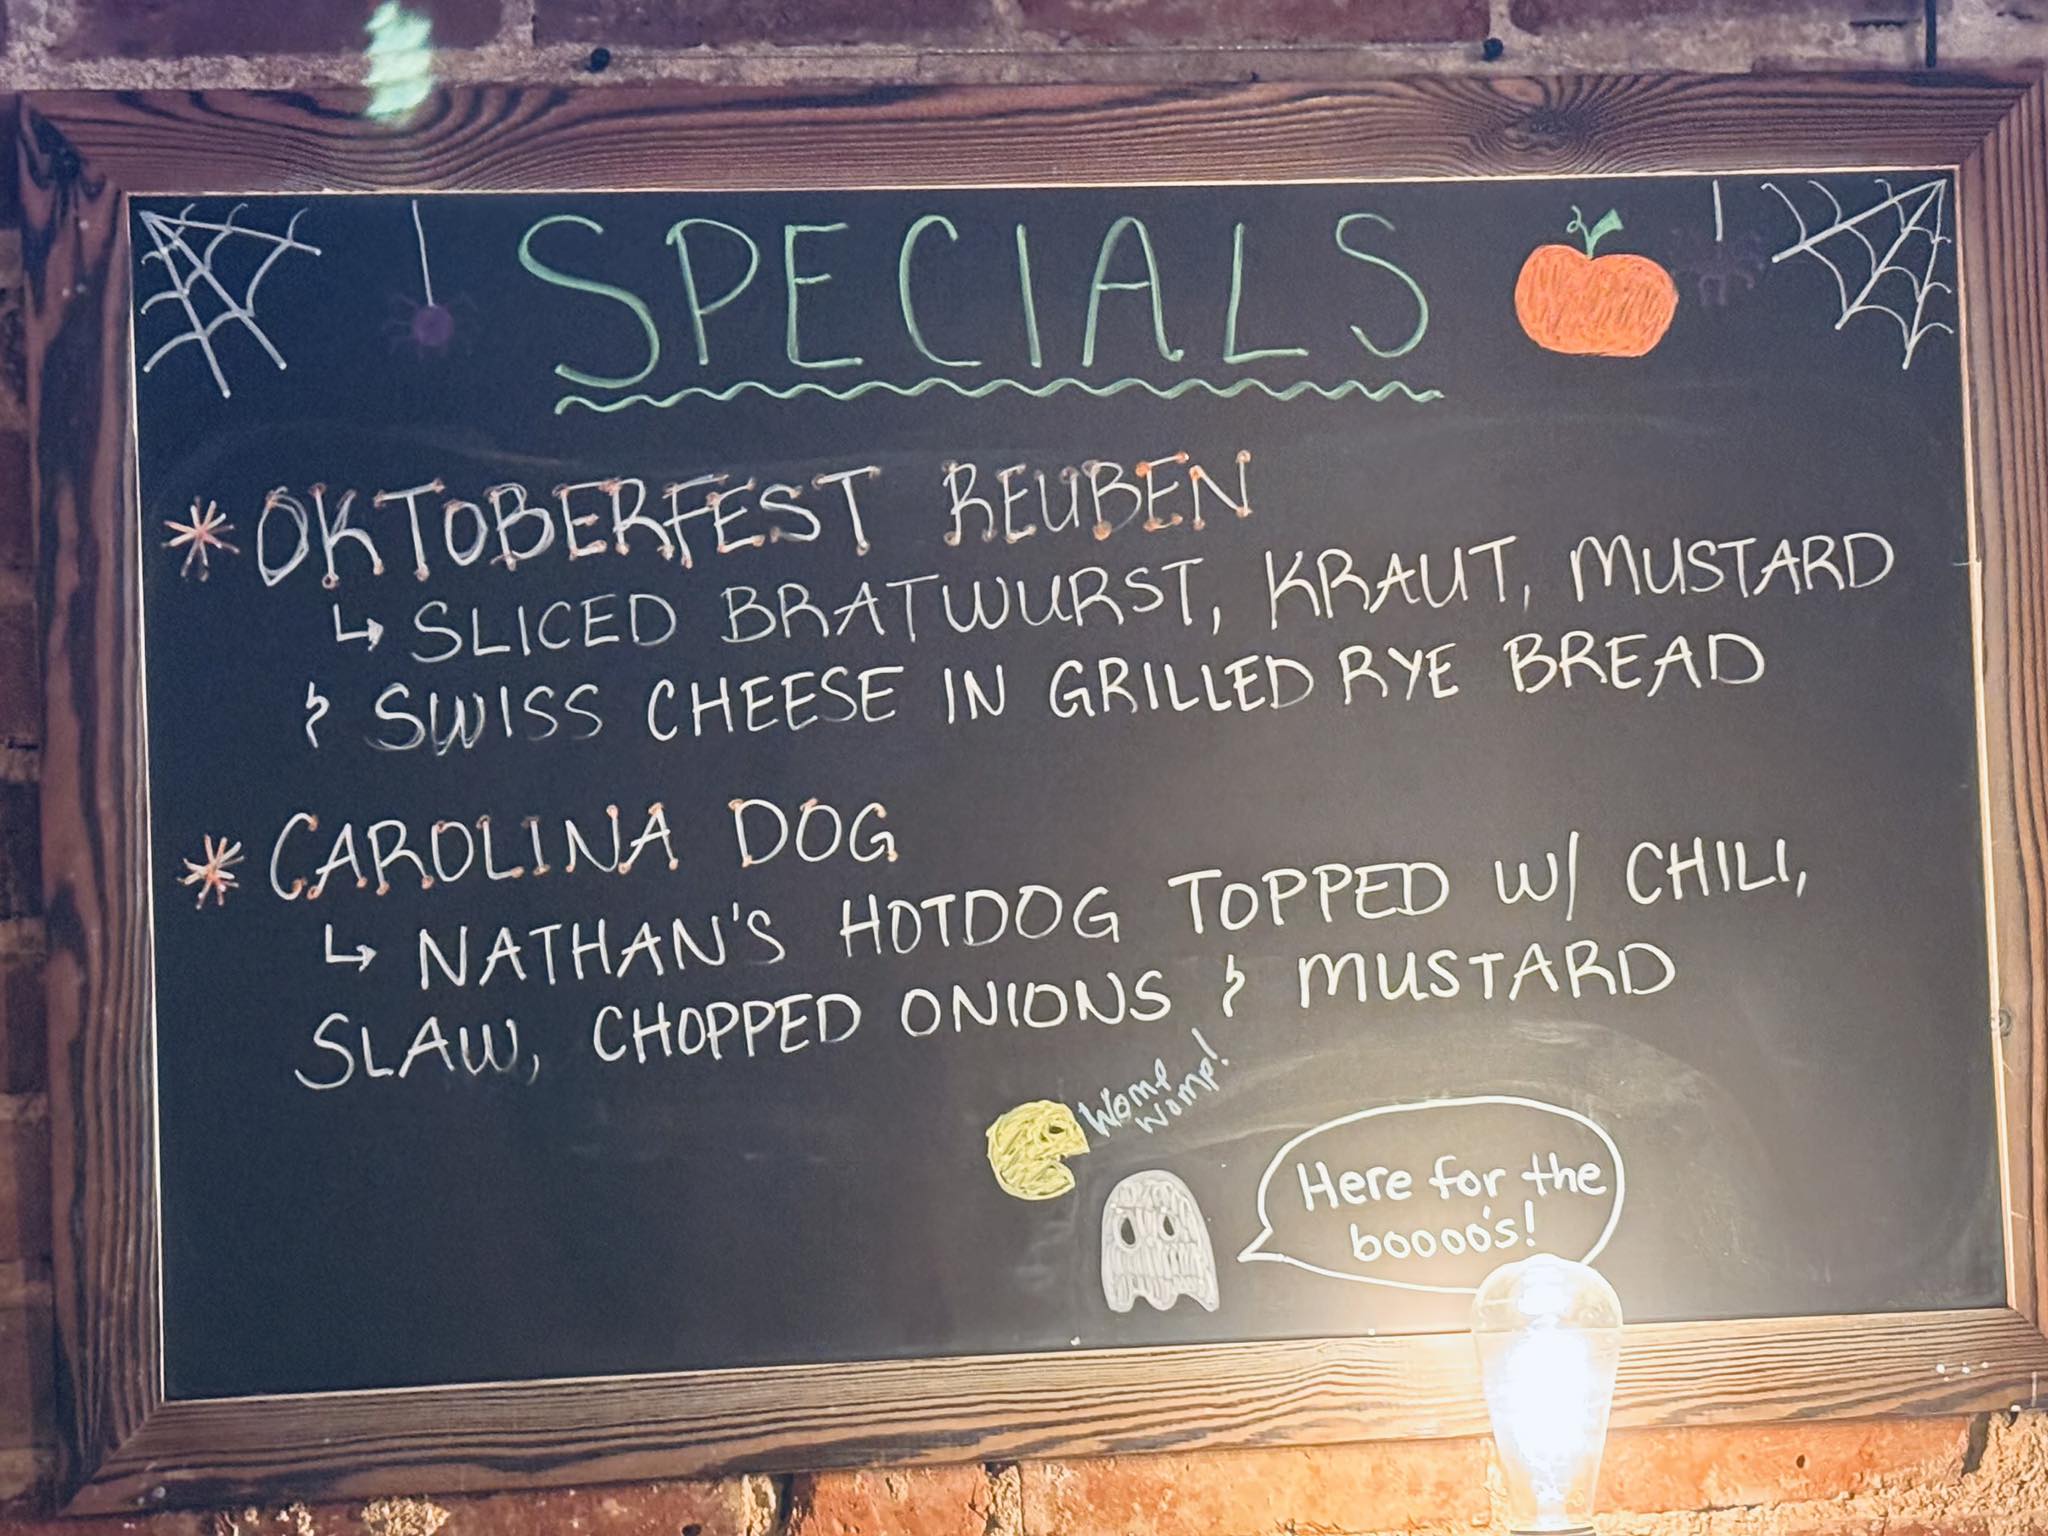 SPECIALS
* OKTOBERFEST REUBEN
↳ SLICED BRATWURST, KRAUT, MUSTARD
& SWISS CHEESE IN GRILLED RYE BREAD
* CAROLINA DOG
↳ NATHAN'S HOTDOG TOPPED W/ CHILI,
SLAW, CHOPPED ONIONS & MUSTARD
Womp
womp!
Here for the
boooo's!